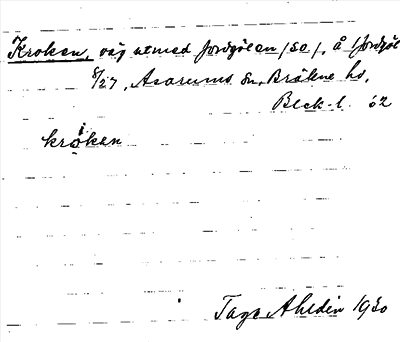 Kroken, väg utmed Jordgölen /SO/, å Jordgöl
8/27, Asarums sn, Bräkne hd,
Blek. l. 62
krøken
Tage Ahldén 1930